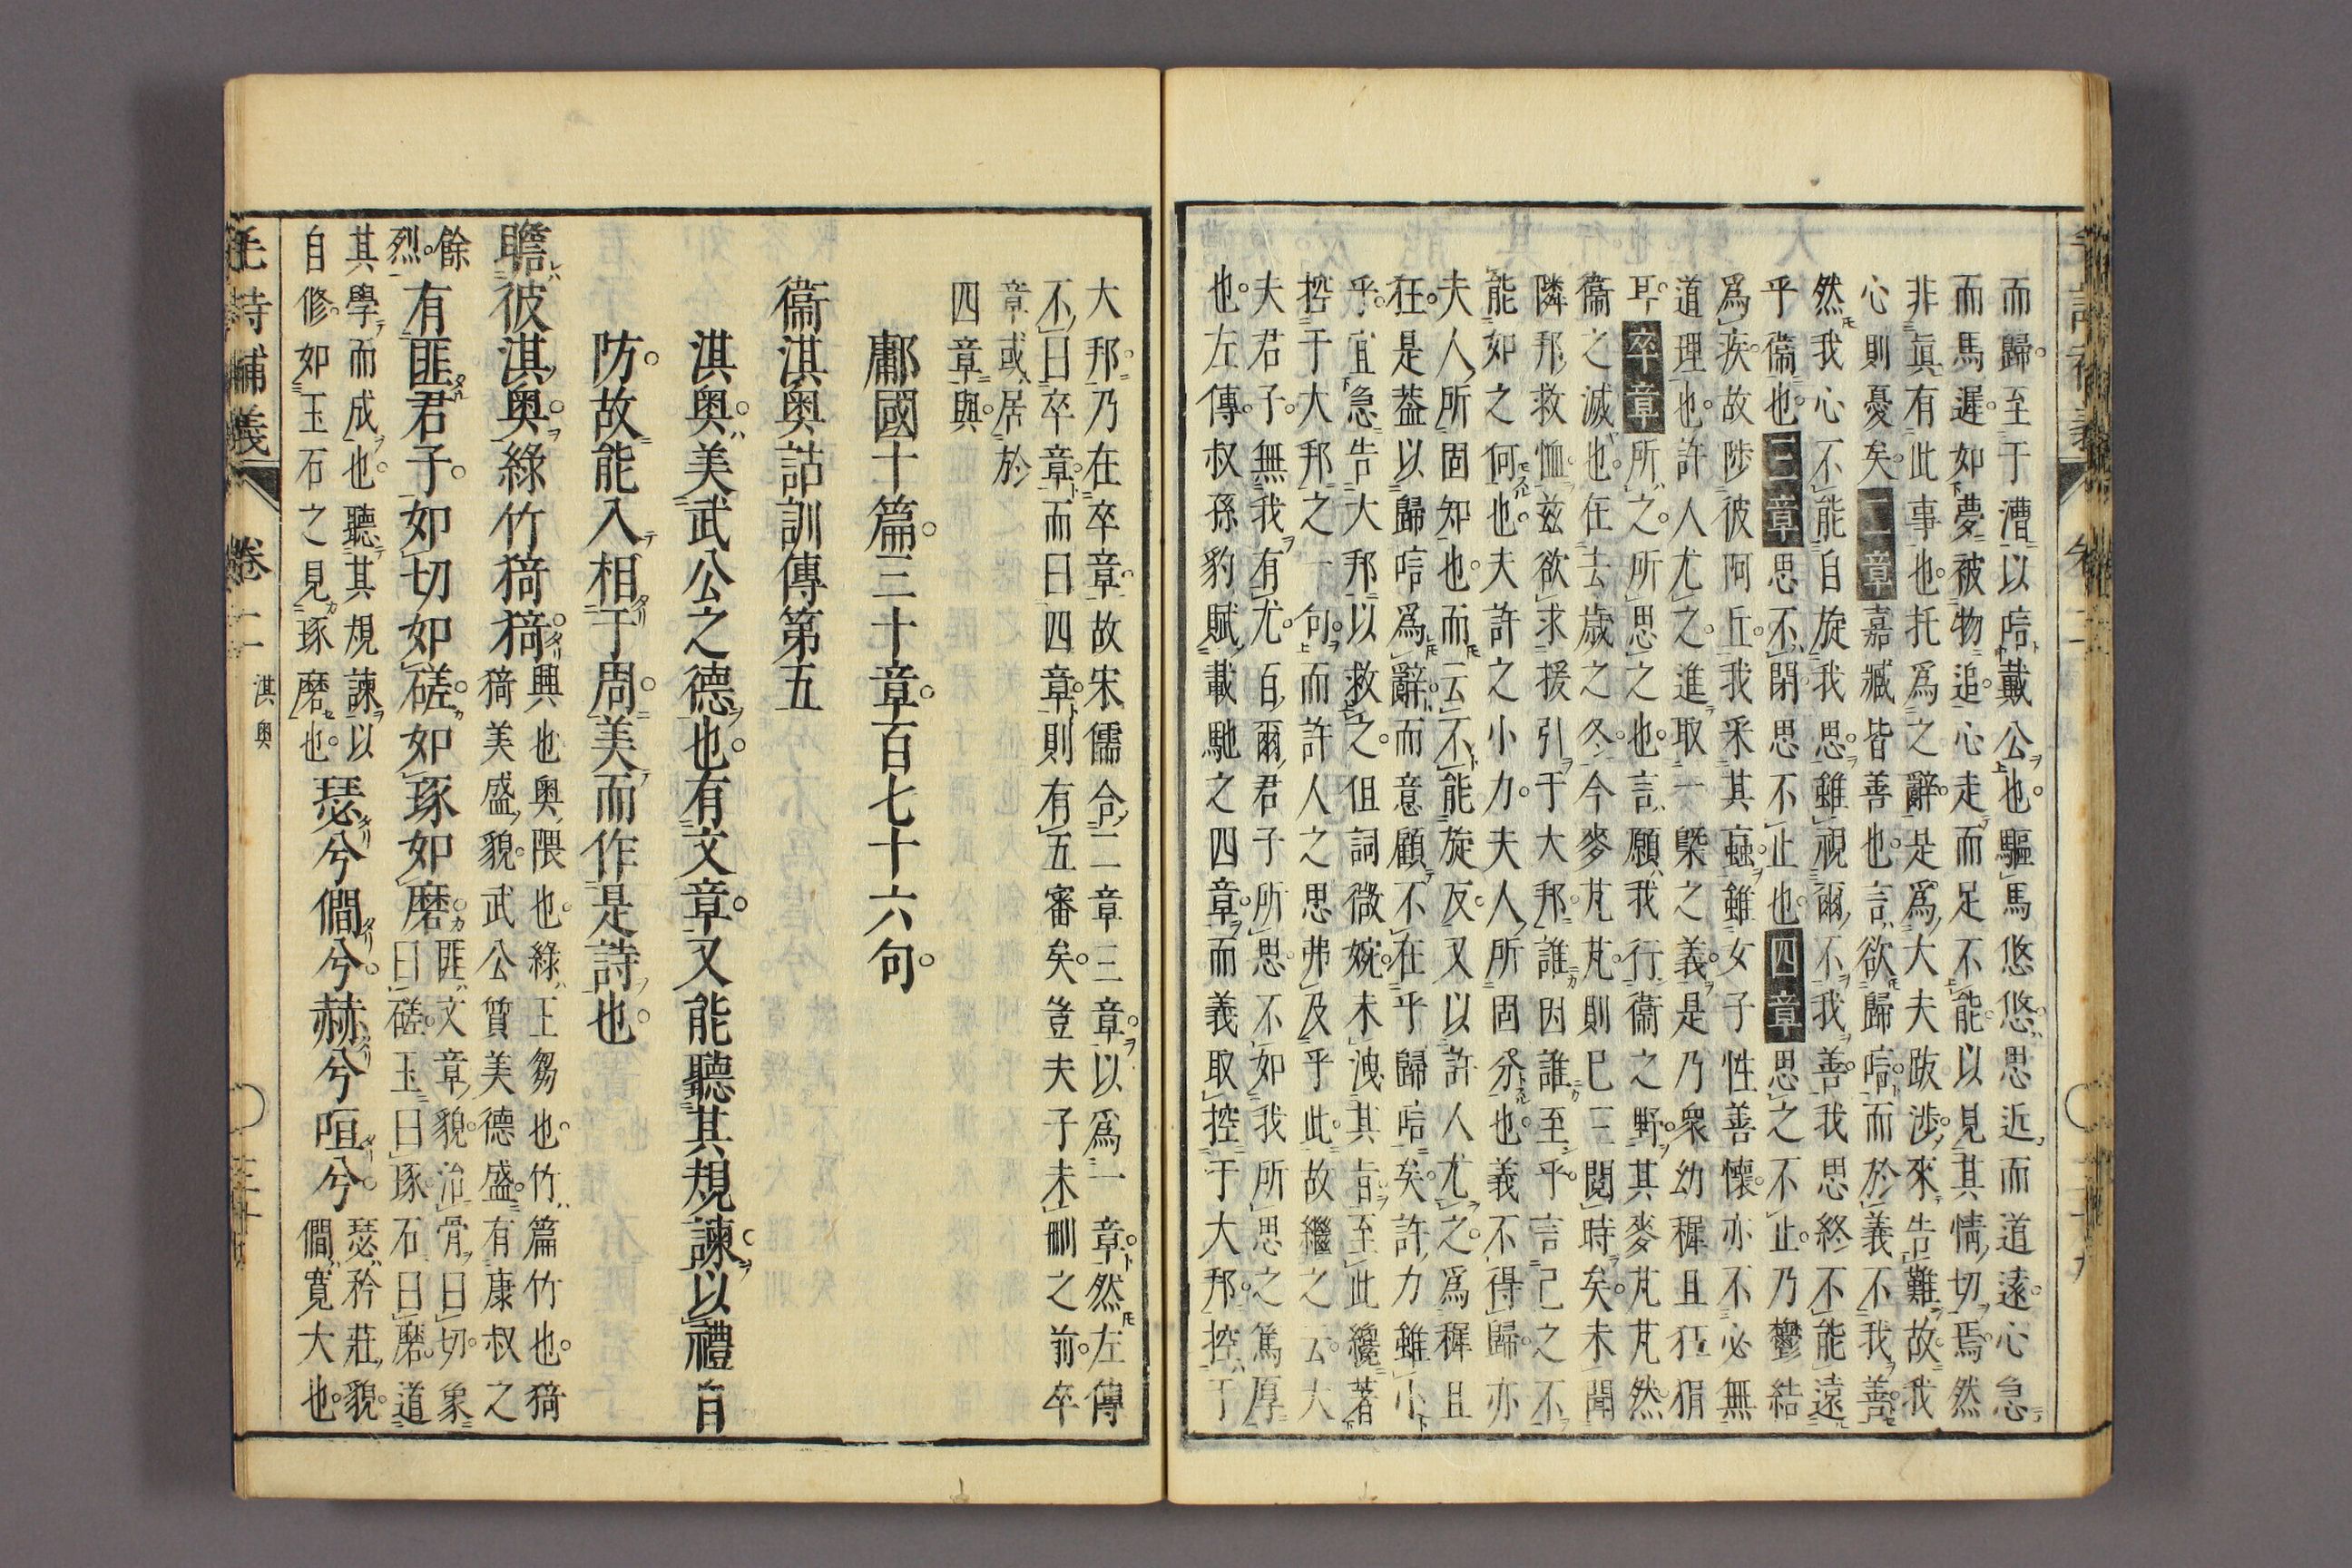 而歸。至于漕以唁戴公也。驅馬悠悠。思近而道遠。心急
而馬遲。如夢被物追。心走而足不能。以見其情切焉。然
非眞有此事也。托爲之辭。是爲大夫跋涉來告難。故我
心則憂矣。二章嘉臧皆善也。言欲歸唁。而於義不我善
然我心不能自旋我思。雖視爾不我善。我思終不能遠
乎衞也。三章思不閉思不止也。四章思之不止。乃鬱結
爲疾。故陟彼阿丘。我采其蝱。雖女子性善懷。亦不必無
道理也。許人尤之。進取一槩之義。是乃衆幼穉且狂狷
耳。卒章所之。所思之也。言願我行衞之野。其麥芃芃然
衞之滅也。在去歲之冬。今麥芃芃。則已三閱時矣。未聞
隣邦救恤。兹欲求援引于大邦。誰因誰至乎。言己之不
能如之何也。夫許之小力。夫人所固分也。義不得歸。亦
夫人所固知也。而云不能旋反。又以許人尤之。爲穉且
狂。是葢以歸唁爲辭。而意顧不在乎歸唁矣。許力雖小
乎。宜急告大邦以救之。但詞微婉。未洩其吉至此纔著
控于大邦之一句。而許人之思弗及乎此。故繼之云。大
夫君子。無我有尤。百爾君子所思。不如我所思之篤厚
也。左傳。叔孫豹賦載馳之四章。而義取控于大邦。控于
大邦。乃在卒章。故宋儒合二章三章。以爲一章。然左傳
不曰卒章。而曰四章。則有五審矣。豈夫子未刪之前。卒
章或居於
四章與。
鄘國十篇。三十章。百七十六句。
衞淇奥詁訓傳第五
淇奥。美武公之德也。有文章。又能聽其規諫。以禮自
防。故能入相于周。美而作是詩也。
瞻彼淇奥。綠竹猗猗。興也奥隈也。綠王芻也。竹篇竹也。猗
猗美盛貌。武公質美德盛。有康叔之
餘
烈。有匪君子。如切如磋。如琢如磨。匪文章貌。治骨曰切。象
曰磋。玉曰琢。石曰磨。道
其學而成也。聽其規諫以
自修。如玉石之見琢磨也。瑟兮僩兮。赫兮咺兮。瑟矜莊貌。
僩寬大也。
毛詩補義
卷二
淇奥
三十